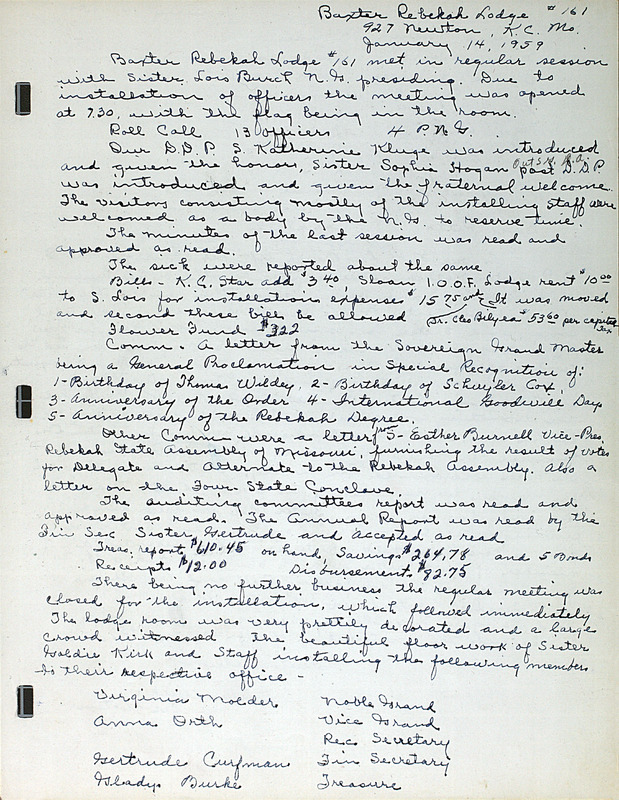 Baxter Rebekah Lodge #161
927 Newton, K.C. Mo.
January 14, 1959
Baxter Rebekah Lodge #161 met in regular session
with Sister Lois Burch N.G. presiding. Due to
installation of officers the meeting was opened
at 7.30, with the flag being in the room.
Roll Call 13 officers 4 P.N.G.
Our D.D.P. S. Katherine Kluge was introduced
and given the honors, Sister Sophia Hogan past D.D.P.
was introduced and given the fraternal welcome.
The visitors consisting mostly of the installing staff were
welcomed as a body by the N.G. to reserve time.
The minutes of the last session was read and
approved as read.
The sick were reported about the same
Bills - K.C. Star add $3.40, Sloan I.O.O.F. Lodge rent $10.00
to S. Lois for installation expenses $15.75 and It was moved
and second these bills be allowed Sr. Cleo $53.60 per capita tax
Flower Fund $3.22
Comm. - A letter from the Sovereign Grand Master
being a General Proclamation in Special Recognition of:
1- Birthday of Thomas Wildey, 2- Birthday of Schuyler Cox,
3- Anniversary of the Order 4- International Goodwill Day
5- Anniversary of the Rebekah Degree.
Other Comm. were a letter S- Esther Burnell Vice-Pres.
Rebekah State Assembly of Missouri, furnishing the result of votes
for Delegate and Alternate to the Rebekah Assembly. Also a
letter on the Four State Conclave.
The auditing committees report was read and
approved as read. The Annual Report was read by the
Fin Sec Sister Gertrude and Accepted as read
Treas. report $610.45 on hand, Savings $264.78 and 5 Bonds
Receipts $12.00 Disbursements $82.75
There being no further business the regular meeting was
closed for the installation, which followed immediately
The lodge room was very prettily decorated and a large
crowd witnessed the beautiful floor work of Sister
Goldie Kirk and Staff installing the following members
to their respective office -
Virginia Molder Noble Grand
Anna Orth Vice Grand
Rec Secretary
Gertrude Curfman Fin Secretary
Gladys Burke Treasure